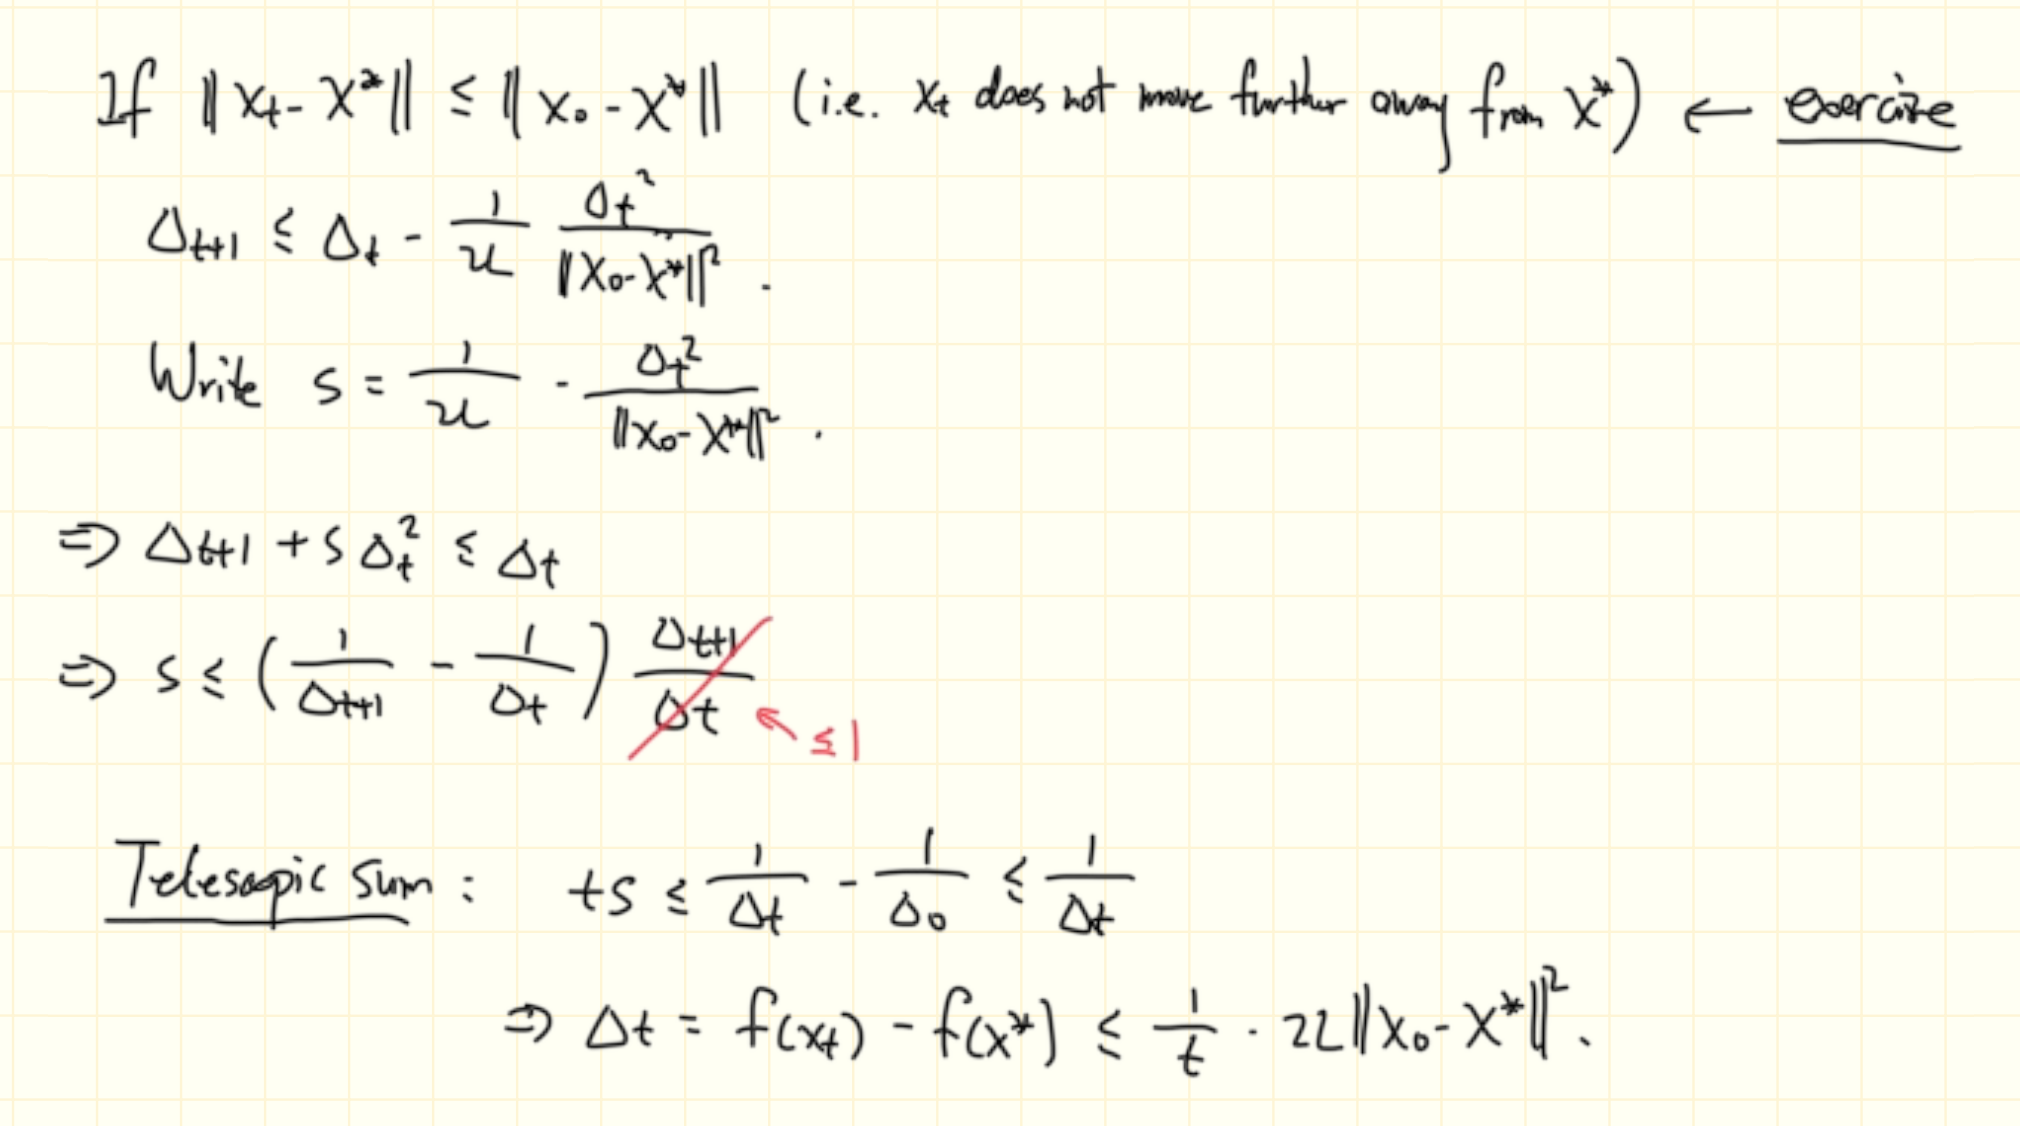 If ||x_t - x*|| ≤ ||x_0 - x*|| (i.e. x_t does not move further away from x*) ← exercise
Δ_{t+1} ≤ Δ_t - \frac{1}{2L} \frac{Δ_t^2}{||x_0 - x*||^2}.
Write s = \frac{1}{2L} - \frac{Δ_t^2}{||x_0 - x*||^2}.
⇒ Δ_{t+1} + s Δ_t^2 ≤ Δ_t
⇒ s ≤ (\frac{1}{Δ_{t+1}} - \frac{1}{Δ_t}) \frac{Δ_{t+1}}{Δ_t} ↖ ≤ 1
Telescopic sum: ts ≤ \frac{1}{Δ_t} - \frac{1}{Δ_0} ≤ \frac{1}{Δ_t}
⇒ Δ_t = f(x_t) - f(x*) ≤ \frac{1}{t} · 2L ||x_0 - x*||^2.